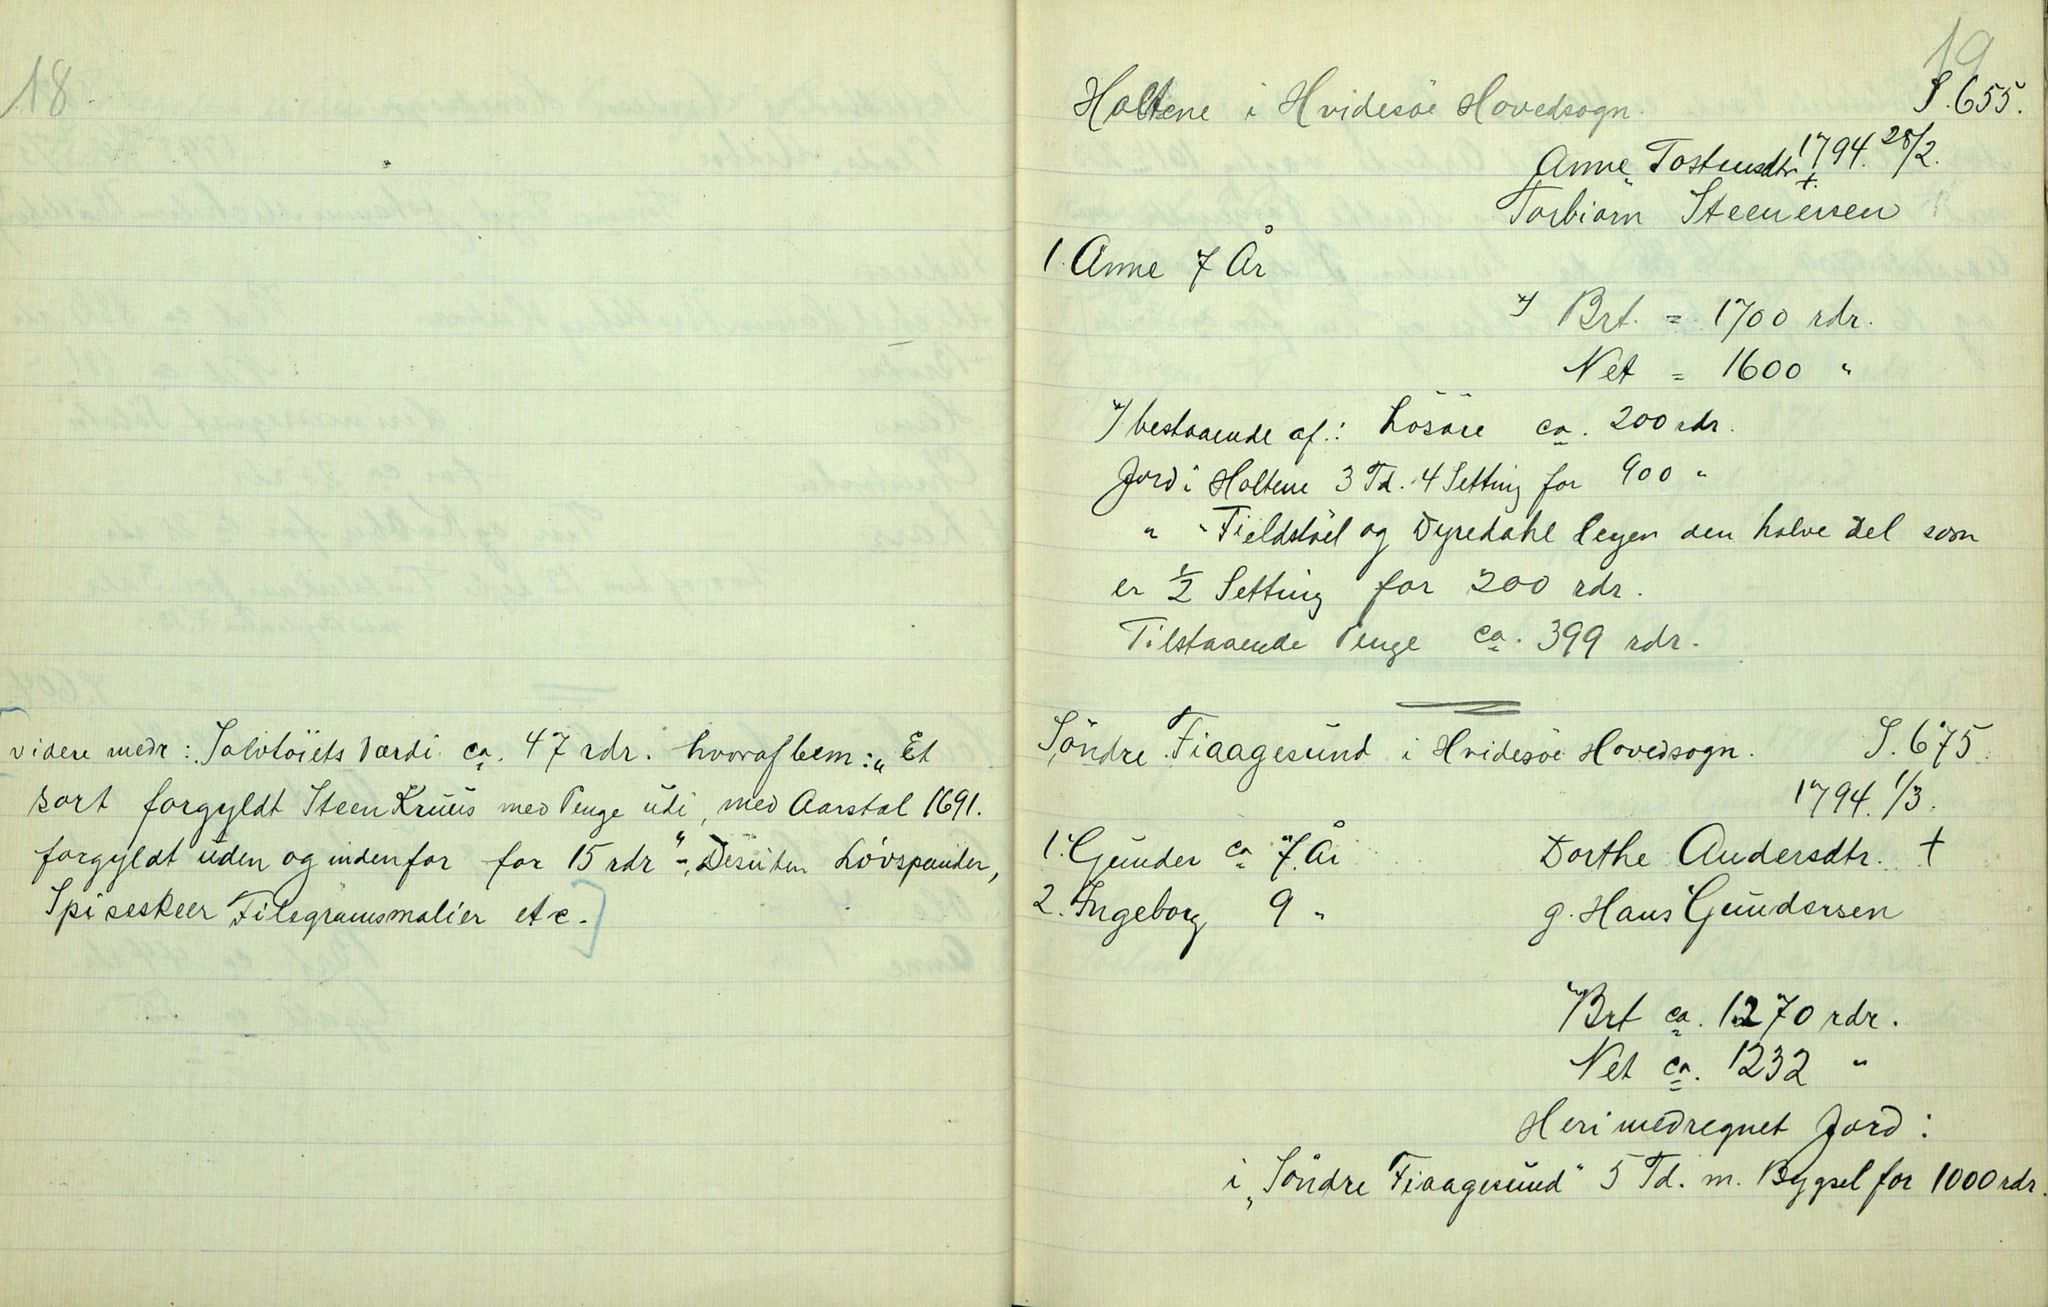 18
videre medr: Sølvtöiets værdi ca. 47 rdr. hvoraf bem: „Et
sort forgyldt Steen Kruus med Penge udi, med Aarstal 1691.
forgyldt uden og indenfor for 15 rdr" -, Desuten Lövspander,
Spiseskeer Filegramsmalier etc.
19
Holtene i Hvidesöe Hovedsogn. S. 655.
Anne Tostensdtr 1794. 28/2.
+.
Torbiörn Steenersen
1. Anne 7 År
*/ Brt. = 1700 rdr.
Net = 1600 "
*/ bestaaende af.: Lösöre ca. 200 rdr.
Jord i Holtene 3 Td. 4 Setting for 900 "
" " Fieldstöel og Dyredahl legen den halve Del som
er 1/2 Setting for 200 rdr.
Tilstaaende Penge ca. 399 rdr.
Söndre Fiaagesund i Hvidesöe Hovedsogn. S. 675.
1794. 1/3.
1. Gunder ca 7 År Dorthe Andersdtr. +
2. Ingeborg 9 " g. Hans Gundersen
Brt ca. 1270 rdr.
Net ca. 1232 "
Heri medregnet Jord:
i „Söndre Fiaagesund" 5 Td. m. Bygsel for 1000 rdr.